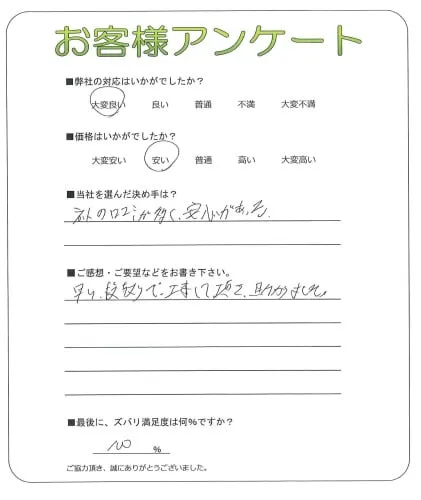 お客様アンケート
■弊社の対応はいかがでしたか？
大変良い 良い 普通 不満 大変不満
■価格はいかがでしたか？
大変安い 安い 普通 高い 大変高い
■当社を選んだ決め手は？
ネットの口コミが多く、安心がある。
■ご感想・ご要望などをお書き下さい。
早い段取りで工事して頂き、助かりました。
■最後に、ズバリ満足度は何%ですか？
100 %
ご協力頂き、誠にありがとうございました。